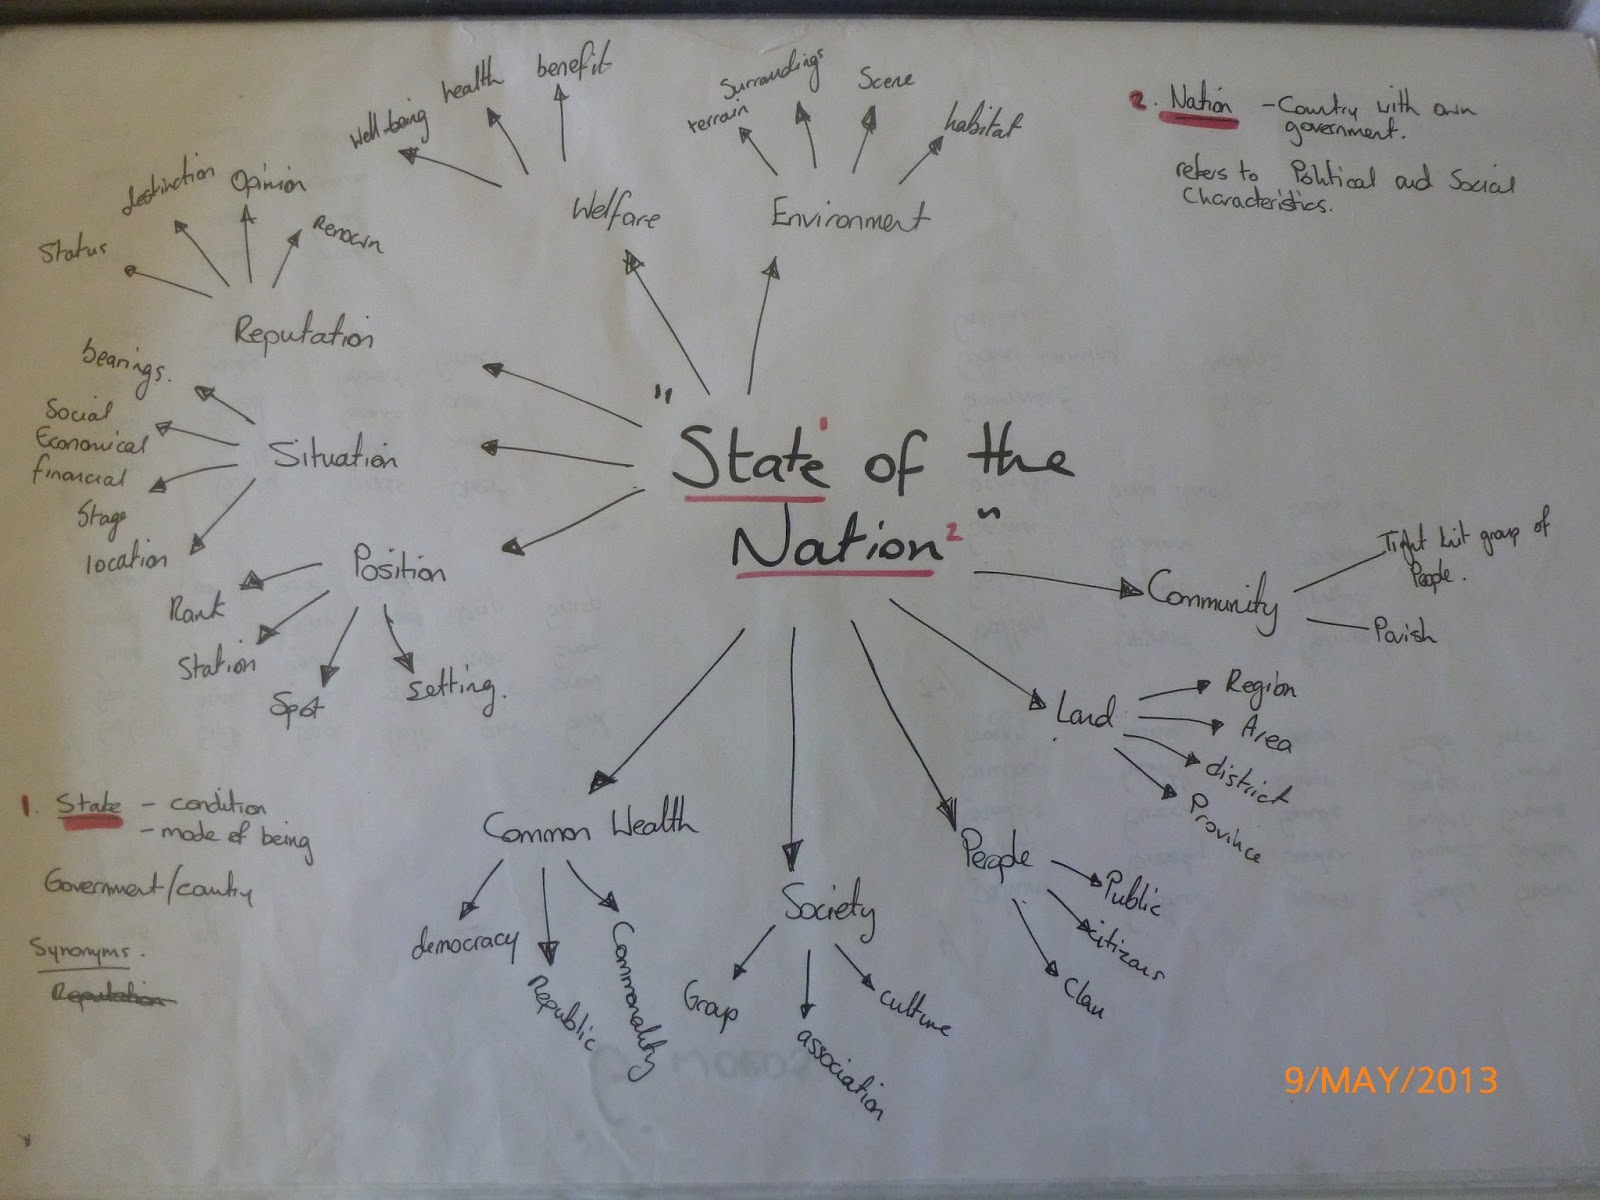 "State¹ of the
Nation²"
Welfare
well-being
health
benefit
Environment
terrain
Surroundings
Scene
habitat
2. Nation - Country with own
government.
refers to Political and Social
Characteristics.
Reputation
Status
destinction
Opinion
Renown
Situation
bearings.
Social
Economical
financial
Stage
location
Position
Rank
Station
Spot
setting.
Community
Tight knit group of
People.
Parish
Land
Region
Area
district
Province
People
Public
citizens
Clan
Society
Group
association
culture
Common Wealth
democracy
Republic
Commonality
1. State - condition
- mode of being
Government/country
Synonyms.
Reputation
9/MAY/2013